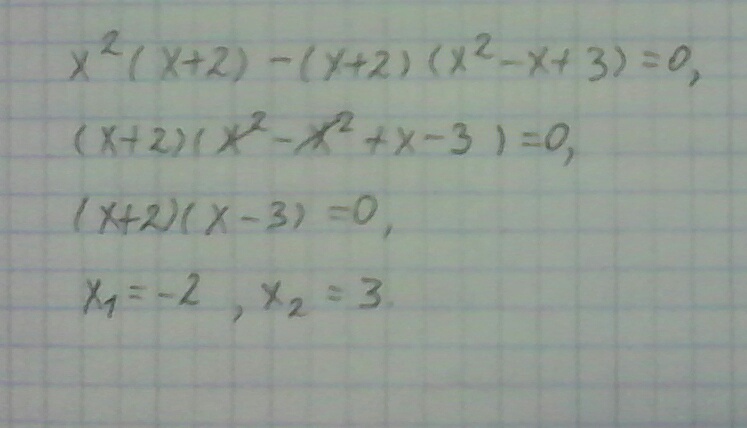 x²(x+2) – (x+2)(x² – x + 3) = 0,
(x+2)(x² – x² + x – 3) = 0,
(x+2)(x – 3) = 0,
x₁ = –2, x₂ = 3.